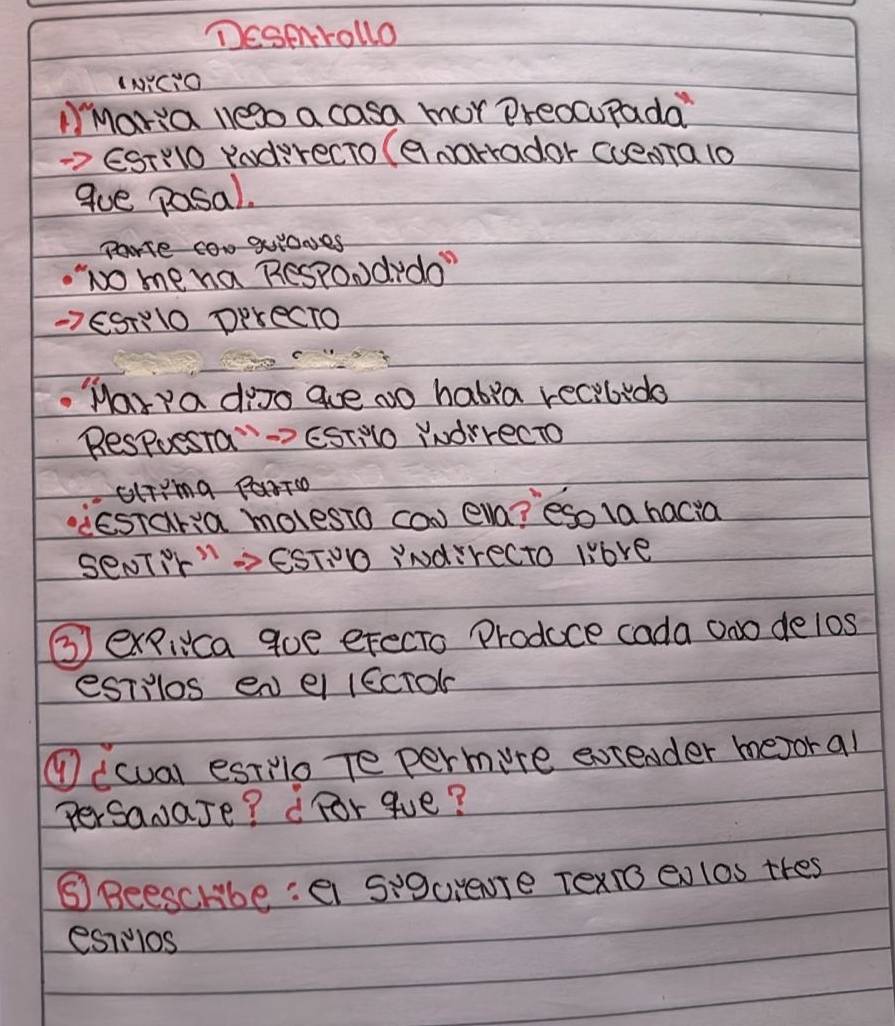 Desarrollo
inicio
1) "Maria llego a casa muy Preocupada"
-> Estilo indirecto (el narrador cuenta lo
que pasa).
Parte con guiones
• "No me ha Respondido"
-> Estilo Directo
• "Maria dijo que no habia recibido
Respuesta" -> Estilo indirecto
- ultima parte
• ¿Estaria molesto con ella?" eso la hacia
sentir" -> Estilo indirecto libre
③ explica que efecto Produce cada uno de los
estilos en el lector
④ ¿cual estilo Te permite entender mejor al
Persanaje? ¿Por que?
⑤ Reescribe: el siguiente Texto en los tres
estilos